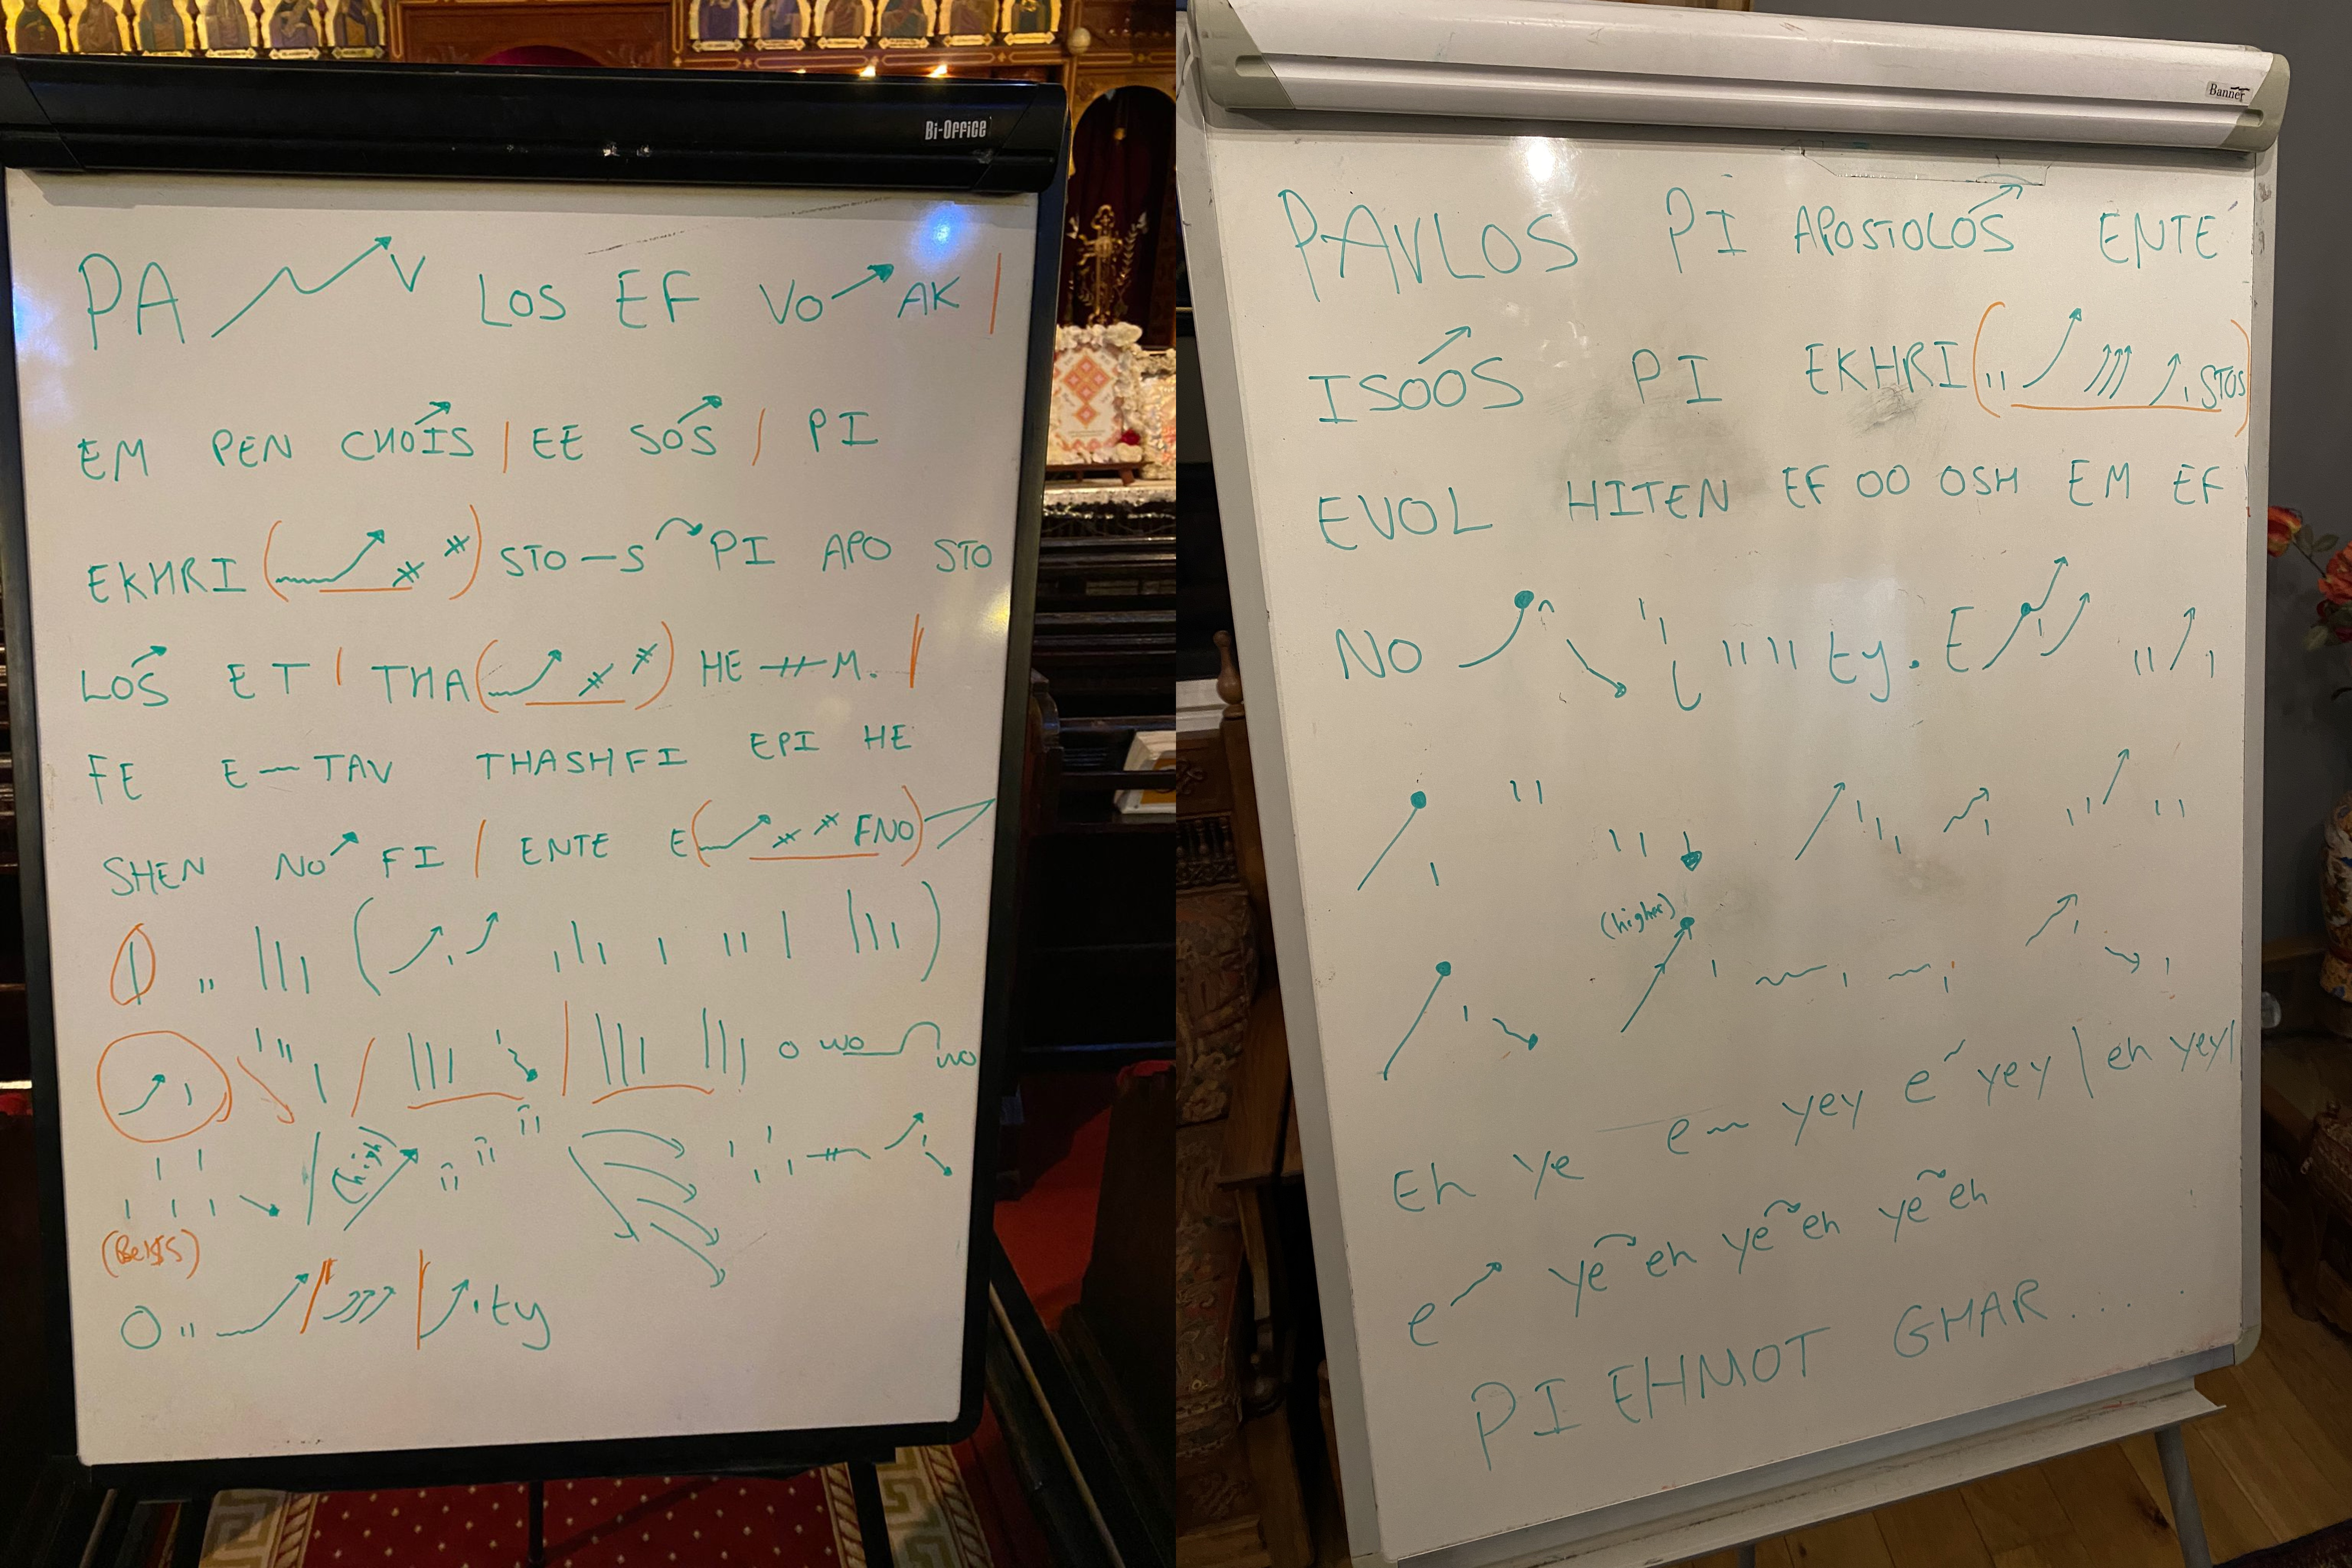 Bi-Office
PA V LOS EF VO AK
EM PEN CHOIS | EE SOS | PI
EKHRI ( ) STO-S PI APO STO
LOS ET | THA ( ) HE M. |
FE E-TAV THASHFI EPI HE
SHEN NO FI | ENTE E( FNO)
O WO WO
(high)
O ty
Banner
PAVLOS PI APOSTOLOS ENTE
ISOOS PI EKHRI ( STOS)
EVOL HITEN EF OO OSH EM EF
NO ty. E
(higher)
Eh ye e~ yey e yey | eh yey |
e ye eh ye eh ye eh
PI EHMOT GHAR.....